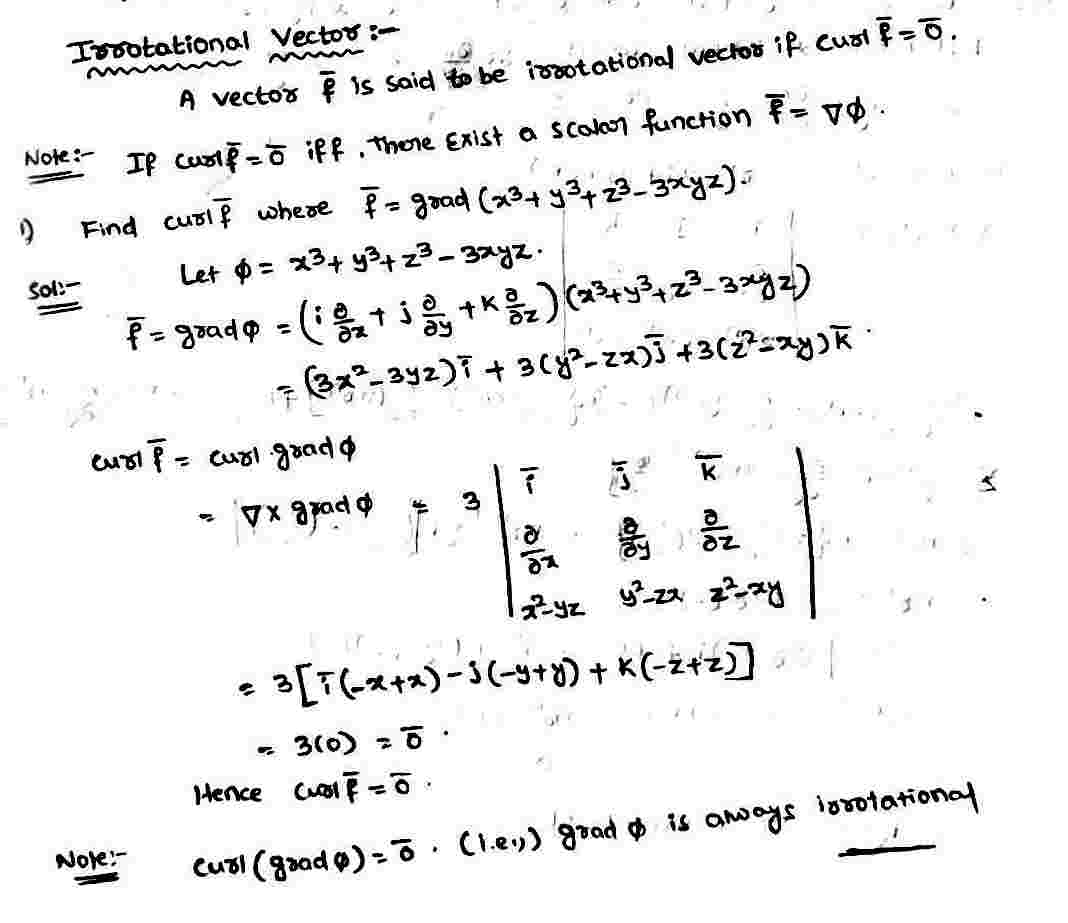 Irrotational Vector :-
A vector f̄ is said to be irrotational vector if curl f̄ = ō.
Note:- If curl f̄ = ō iff, There Exist a scalar function f̄ = ∇ϕ.
1) Find curl f̄ where f̄ = grad (x³ + y³ + z³ - 3xyz).
Sol:- Let ϕ = x³ + y³ + z³ - 3xyz.
f̄ = grad ϕ = (i ∂/∂x + j ∂/∂y + k ∂/∂z) (x³ + y³ + z³ - 3xyz)
= (3x² - 3yz) ī + 3(y² - zx) j̄ + 3(z² - xy) k̄.
curl f̄ = curl grad ϕ
= ∇ × grad ϕ = 3 | ī j̄ k̄ |
| ∂/∂x ∂/∂y ∂/∂z |
| x²-yz y²-zx z²-xy |
= 3[ī(-x+x) - j(-y+y) + k(-z+z)]
= 3(0) = ō.
Hence curl f̄ = ō.
Note:- curl (grad ϕ) = ō. (i.e.,) grad ϕ is always irrotational